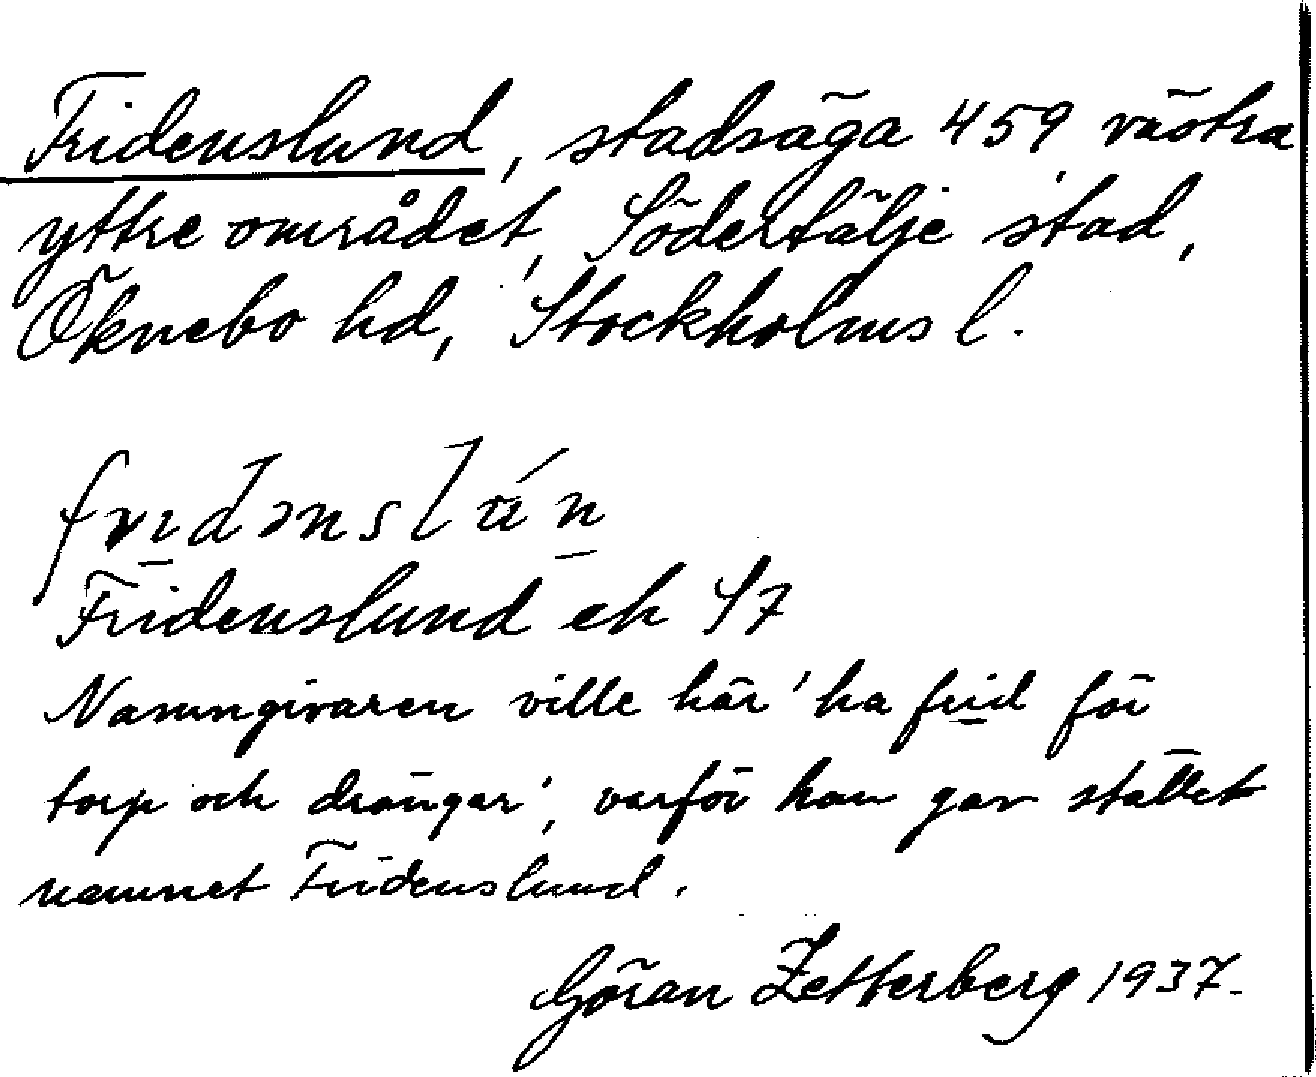 Fridenslund, stadsäga 459, västra
yttre området, Södertälje stad,
Öknebo hd, Stockholms l.
Fridenslund ek S7
Namngivaren ville här 'ha frid för
torp och drängar', varför han gav stället
namnet Fridenslund.
Göran Zetterberg 1937.